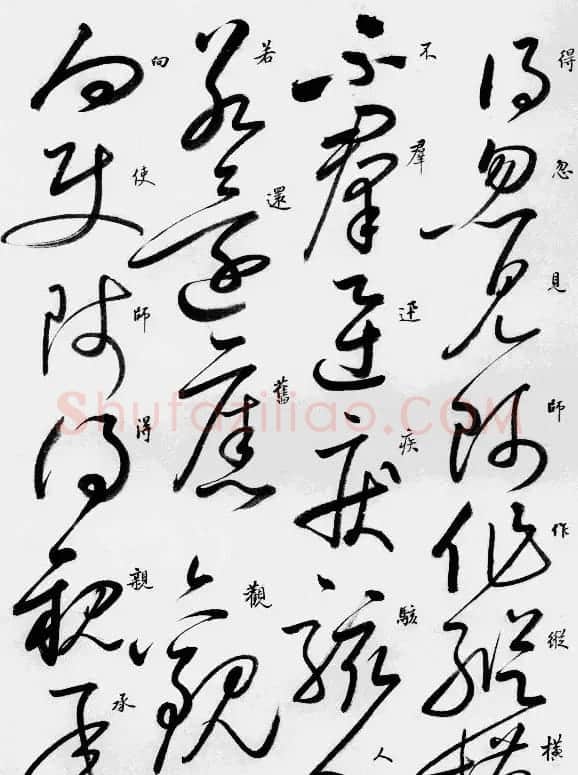 得忽見師作縱橫
不群迅疾駭人
若還舊觀
向使師得親承
Shufaziliao.COM